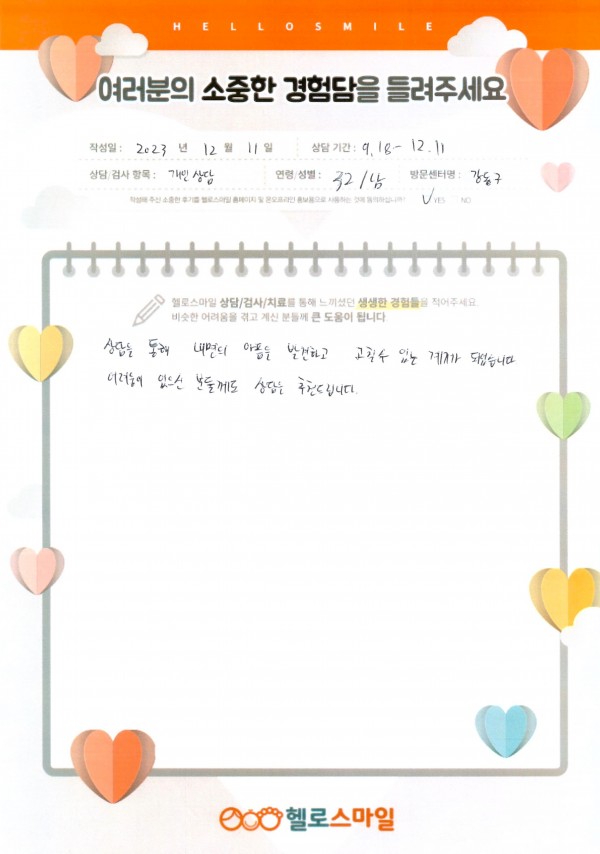 HELLOSMILE
여러분의 소중한 경험담을 들려주세요
작성일 : 2023 년 12 월 11 일 상담 기간 : 9.18 - 12.11
상담/검사 항목 : 개인상담 연령/성별 : 32/남 방문센터명 : 강동구
작성해 주신 소중한 후기를 헬로스마일 홈페이지 및 온오프라인 홍보물으로 사용하는 것에 동의하십니까? V YES NO
헬로스마일 상담/검사/치료를 통해 느끼셨던 생생한 경험들을 적어주세요.
비슷한 어려움을 겪고 계신 분들께 큰 도움이 됩니다
상담을 통해 내면의 아픔을 발견하고 고칠수 있는 계기가 되었습니다
어려움이 있으신 분들께도 상담을 추천드립니다.
헬로스마일